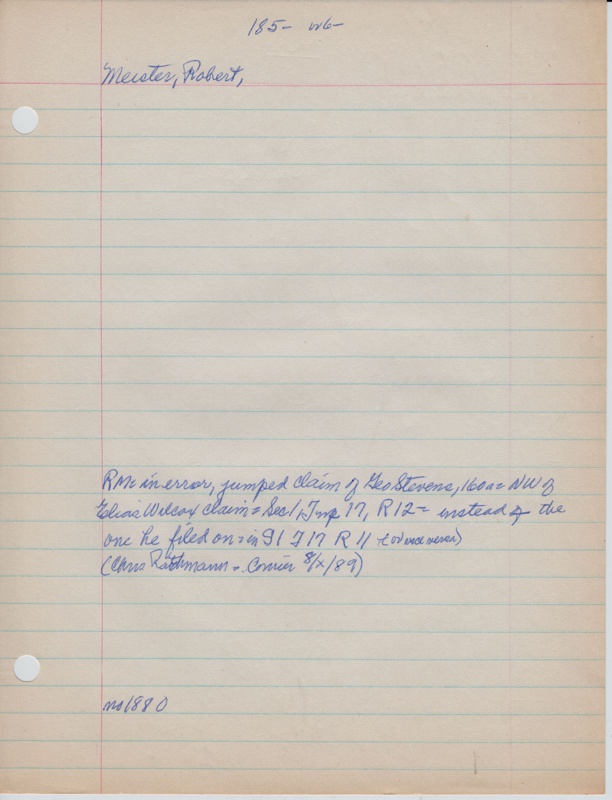 185- w6-
Meister, Robert,
RM= in error, jumped claim of Geo Stevens, 160a= NW of
Elias Wilcox claim= Sec 1, Tmp 17, R12= instead of the
one he filed on= in S1 T17 R 11 (or vice versa)
(Chris Rathmann - Courier 8/x/89)
no 1880